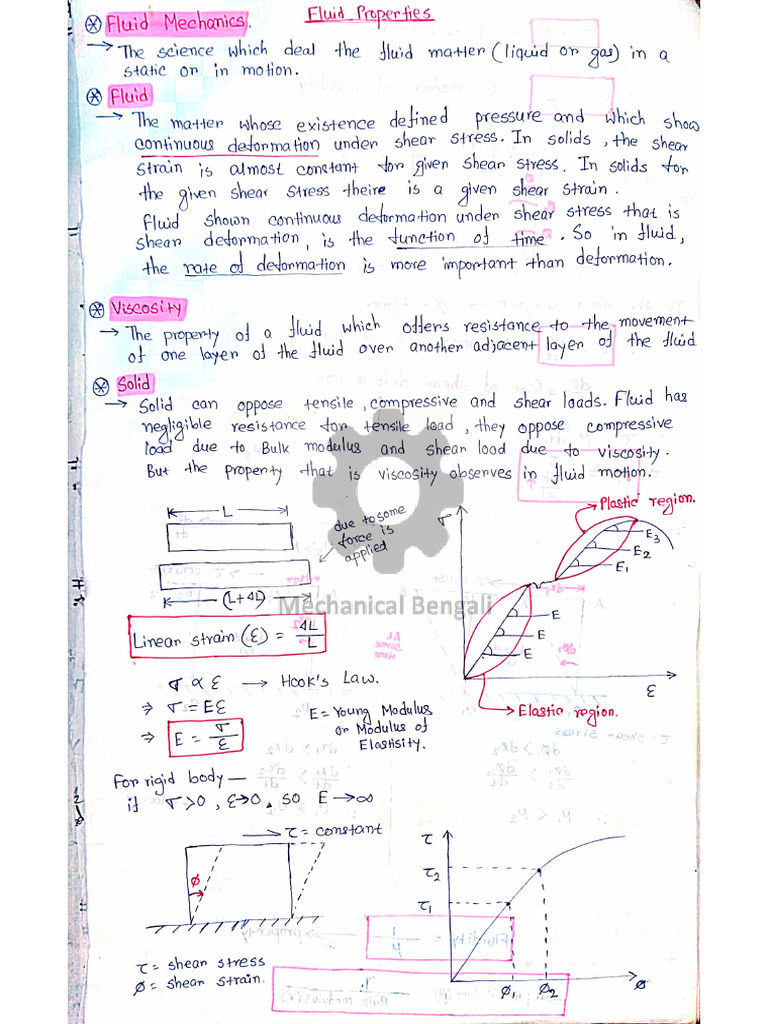 Fluid Properties
Fluid Mechanics.
→ The science which deal the fluid matter (liquid or gas) in a
static or in motion.
Fluid
→ The matter whose existence defined pressure and which show
continuous deformation under shear stress. In solids, the shear
strain is almost constant for given shear stress. In solids for
the given shear stress theire is a given shear strain.
Fluid shown continuous deformation under shear stress that is
shear deformation, is the function of time. So in fluid,
the rate of deformation is more important than deformation.
Viscosity
→ The property of a fluid which offers resistance to the movement
of one layer of the fluid over another adjacent layer of the fluid
Solid
→ Solid can oppose tensile, compressive and shear loads. Fluid has
negligible resistance for tensile load, they oppose compressive
load due to Bulk modulus and shear load due to viscosity.
But the property that is viscosity observes in fluid motion.
L
due to some
force is
applied
(L+ΔL)
Linear strain (ε) = ΔL/L
σ
Plastic region.
E3
E2
E1
E
E
E
ε
Elastic region.
Mechanical Bengali
σ ∝ ε → Hook's Law.
⇒ σ = Eε
⇒ E = σ/ε
E = Young Modulus
or Modulus of
Elastisity.
For rigid body —
if σ>0, ε→0, so E→∞
→ τ = constant
φ
τ = shear stress
φ = shear strain.
τ
τ2
τ1
φ1 φ2 φ